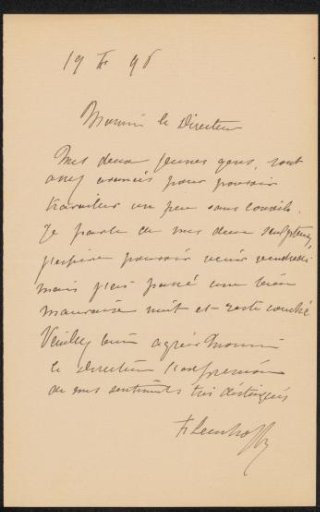 19 F 96
Monsieur le Directeur
Mes deux jeunes gens sont
assez avancés pour pouvoir
travailler un peu sans conseils.
Je parle de mes deux sculpteurs,
j'espère pouvoir venir vendredi
mais j'ai passé une bien
mauvaise nuit et reste couché
Veuillez bien agréer Monsieur
le Directeur l'expression
de mes sentiments très distingués